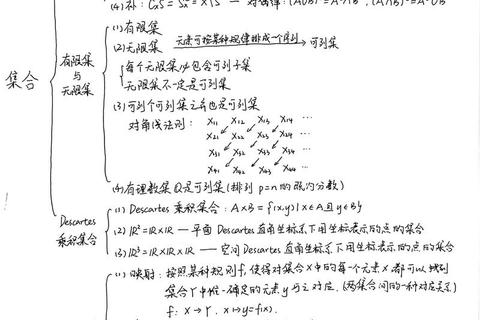 (4) 补: CₓS = Sₓᶜ = X\S — 对偶律: (A∪B)ᶜ = Aᶜ∩Bᶜ, (A∩B)ᶜ = Aᶜ∪Bᶜ
集合
有限集与无限集
(1) 有限集
(2) 无限集 元素可按某种规律排成一个序列 可列集
每个无限集必包含可列子集
无限集不一定是可列集
(3) 可列个可列集之并也是可列集
对角线法则: X₁₁ X₁₂ X₁₃ X₁₄ …
X₂₁ X₂₂ X₂₃ X₂₄ …
X₃₁ X₃₂ X₃₃ X₃₄ …
X₄₁ X₄₂ X₄₃ X₄₄ …
(4) 有理数集Q是可列集 (排列 p=n的既约分数)
Descartes
乘积集合
(1) Descartes 乘积集合: A×B = {(x,y) | x∈A且y∈B}
(2) IR² = IR×IR — 平面Descartes直角坐标系下用坐标表示的点的集合
(3) IR³ = IR×IR×IR — 空间Descartes直角坐标系下用坐标表示的点的集合
(1) 映射: 按照某种规则f, 使得对集合X中的每一个元素x都可以找到
集合Y中唯一确定的元素y与之对应. (两集合间的一种对应关系)
f: X→Y, x↦y=f(x).